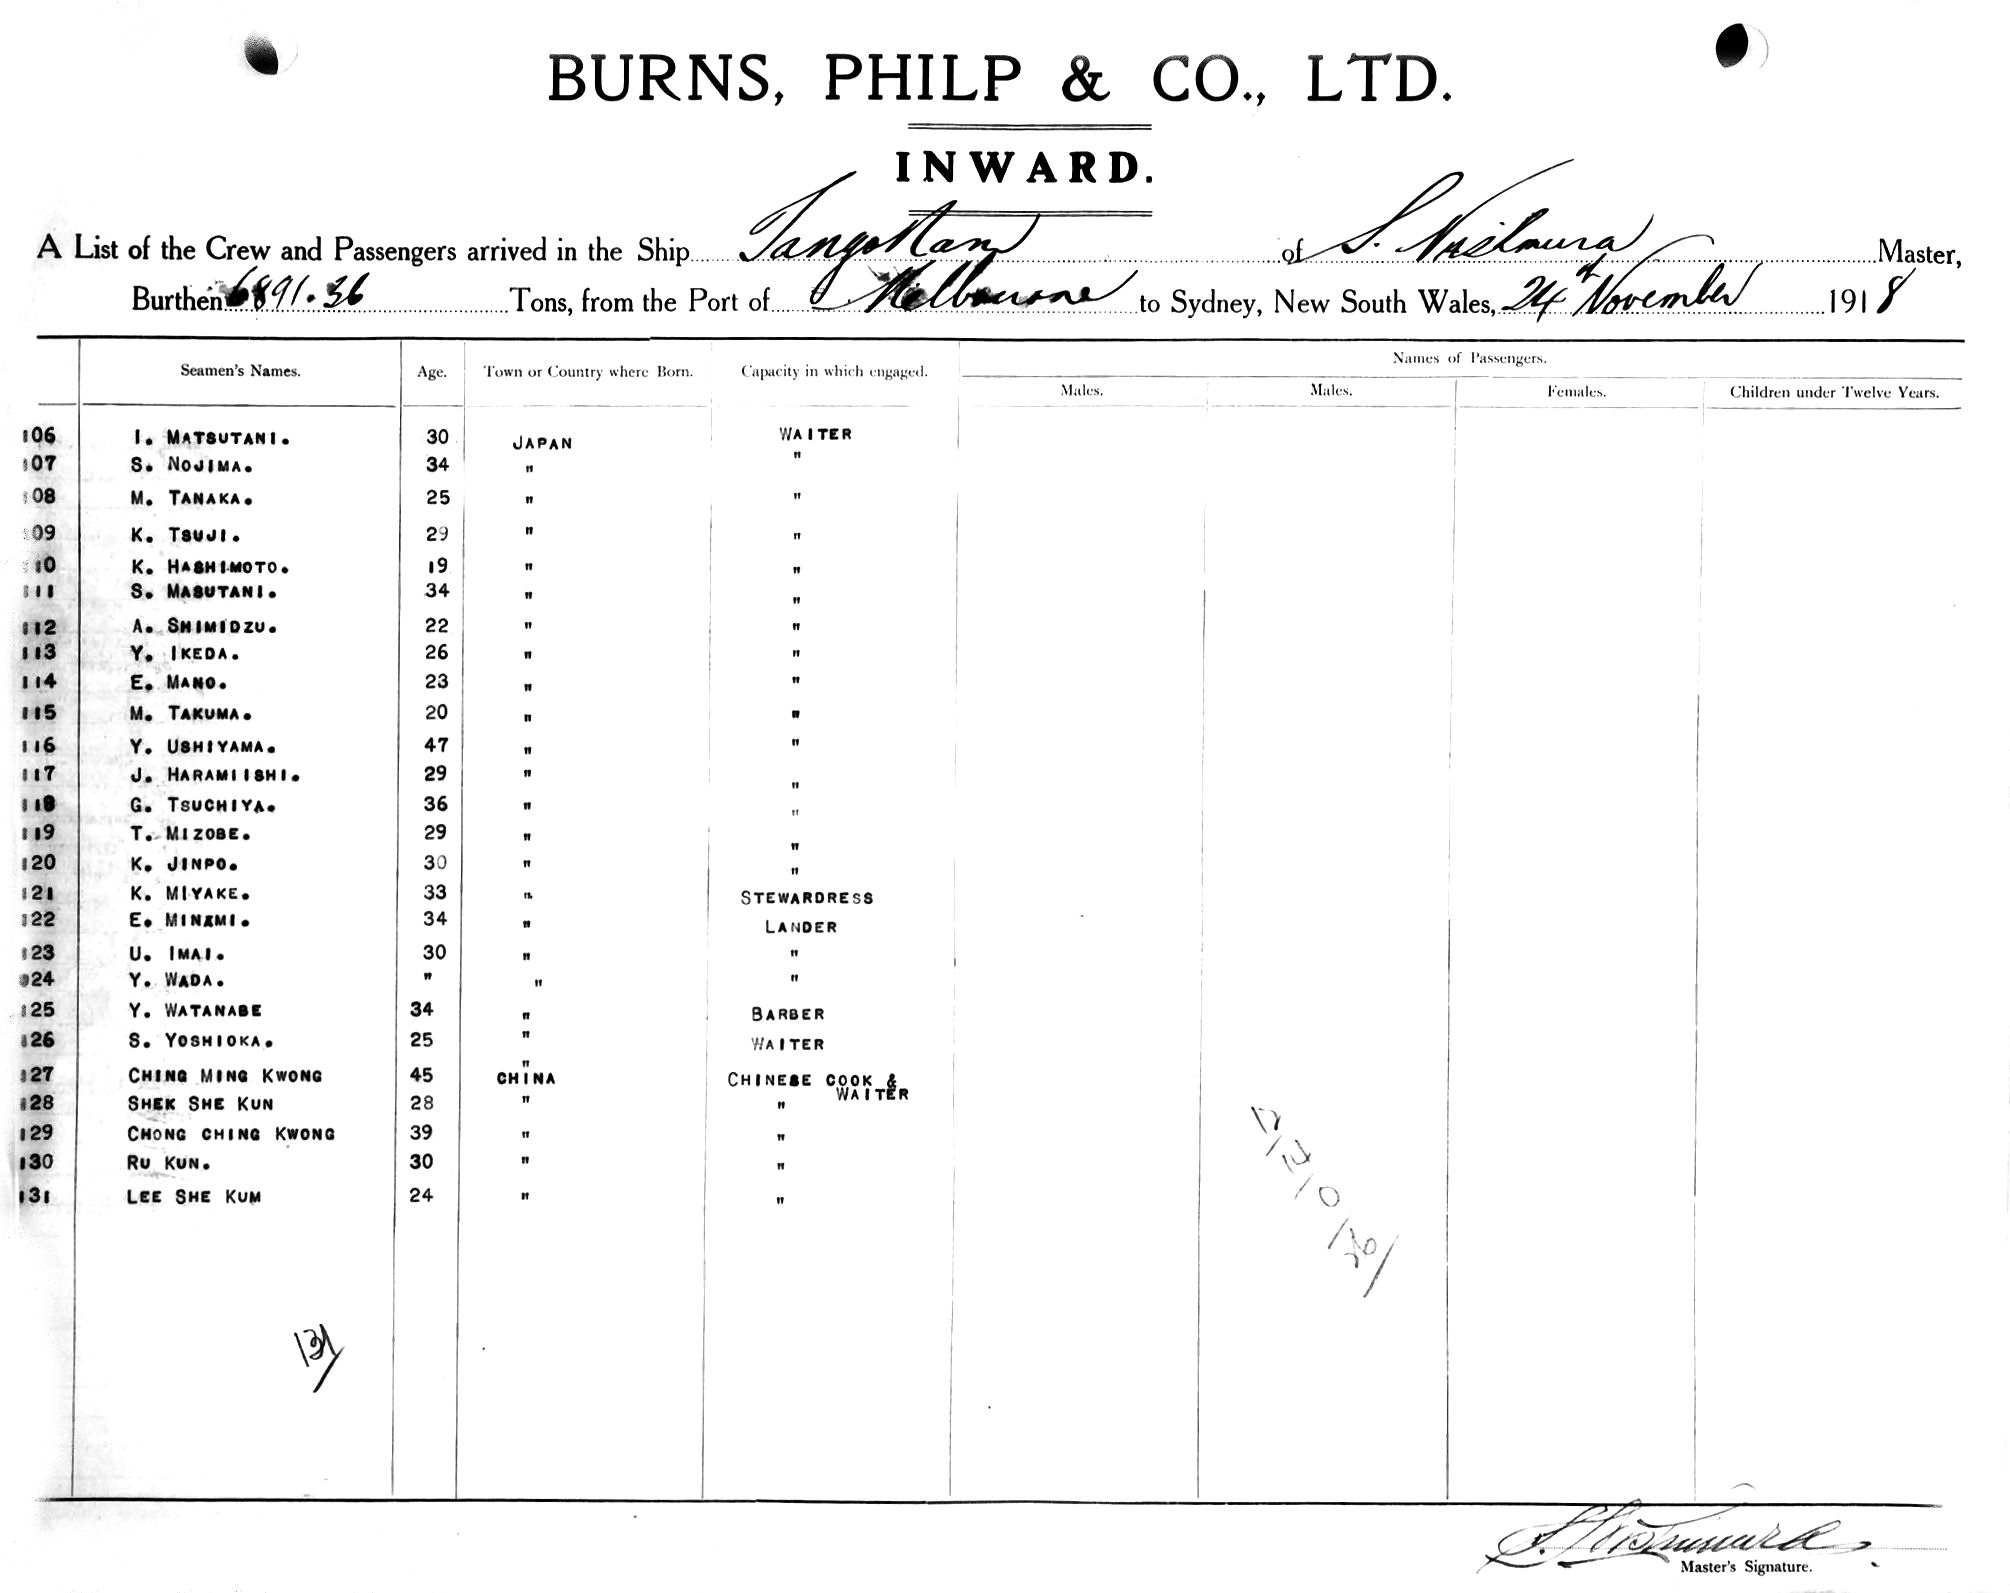 BURNS, PHILP & CO., LTD.
INWARD.
A List of the Crew and Passengers arrived in the Ship Tango Maru of S. Nishimura Master,
Burthen 6891.36 Tons, from the Port of Melbourne to Sydney, New South Wales, 24th November 1918
Names of Passengers.
Seamen's Names. Age. Town or Country where Born. Capacity in which engaged. Males. Males. Females. Children under Twelve Years.
106 I. MATSUTANI. 30 JAPAN WAITER
107 S. NOJIMA. 34 " "
108 M. TANAKA. 25 " "
109 K. TSUJI. 29 " "
110 K. HASHIMOTO. 19 " "
111 S. MASUTANI. 34 " "
112 A. SHIMIDZU. 22 " "
113 Y. IKEDA. 26 " "
114 E. MANO. 23 " "
115 M. TAKUMA. 20 " "
116 Y. USHIYAMA. 47 " "
117 J. HARAMIISHI. 29 " "
118 G. TSUCHIYA. 36 " "
119 T. MIZOBE. 29 " "
120 K. JINPO. 30 " "
121 K. MIYAKE. 33 " STEWARDRESS
122 E. MINAMI. 34 " LANDER
123 U. IMAI. 30 " "
124 Y. WADA. " " "
125 Y. WATANABE 34 " BARBER
126 S. YOSHIOKA. 25 " WAITER
"
127 CHING MING KWONG 45 CHINA CHINESE COOK &
WAITER
128 SHEK SHE KUN 28 " "
129 CHONG CHING KWONG 39 " "
130 RU KUN. 30 " "
131 LEE SHE KUM 24 " "
131
S. Nishimura
Master's Signature.